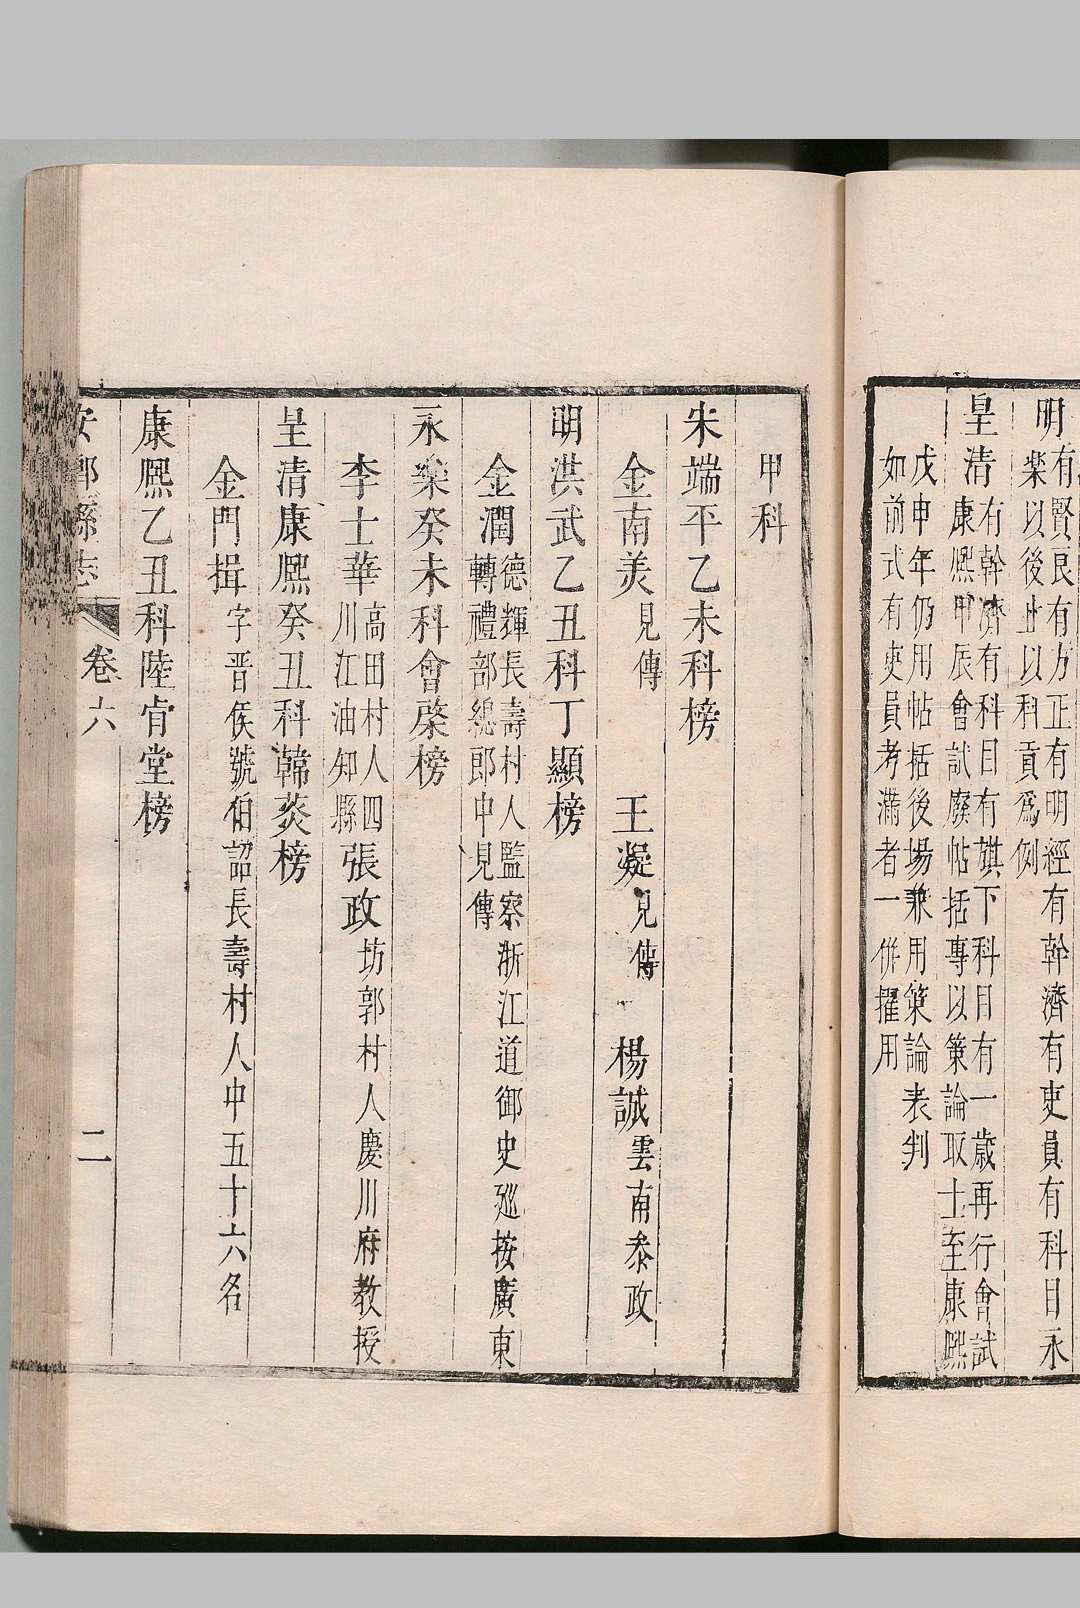 明有賢良有方正有明經有幹濟有吏員有科目永
樂以後止以科貢爲例
皇清有幹濟有科目有旗下科目有一歲再行會試
康熙甲辰會試廢帖括專以策論取士至康熙
戊申年仍用帖括後場兼用策論表判
如前式有吏員考滿者一併擢用
甲科
宋端平乙未科榜
金南美見傳 王凝見傳 楊誠雲南叅政
明洪武乙丑科丁顯榜
金潤德輝長壽村人監察浙江道御史廵按廣東
轉禮部總郎中見傳
永樂癸未科會棨榜
李士華高田村人四
川江油知縣
張政坊郭村人慶川府教授
皇清康熙癸丑科韓菼榜
金門揖字晋侯號伯韶長壽村人中五十六名
康熙乙丑科陸肯堂榜
安鄉縣志 卷六 二